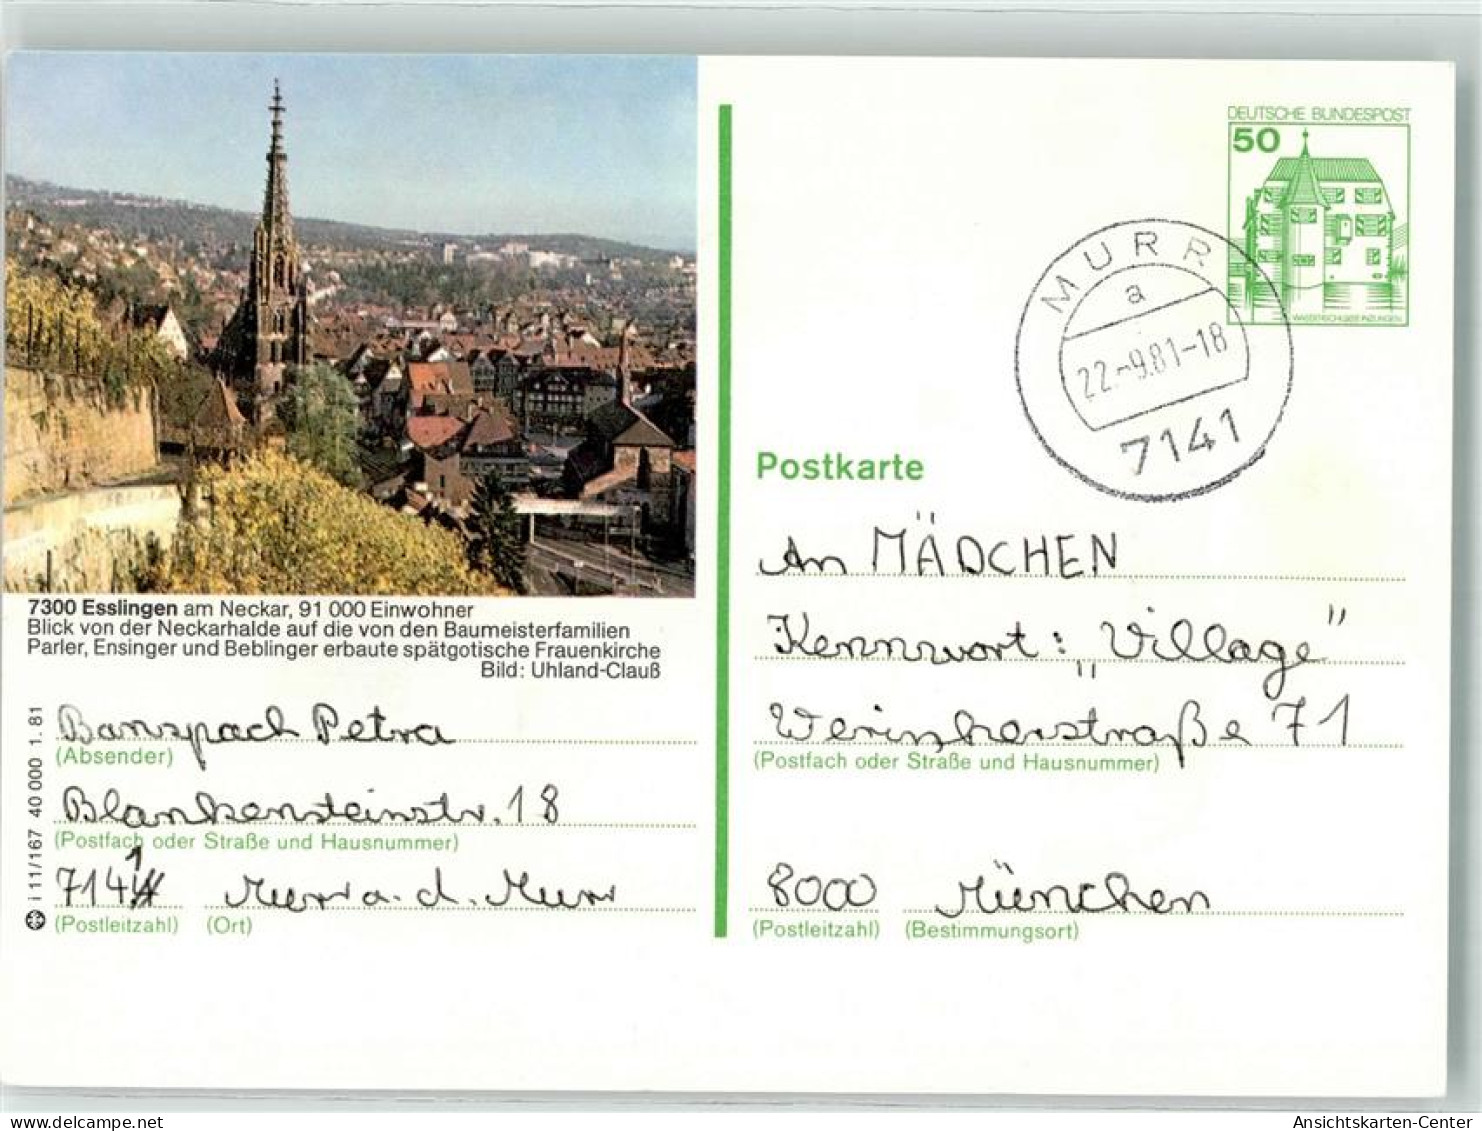 7300 Esslingen am Neckar, 91 000 Einwohner
Blick von der Neckarhalde auf die von den Baumeisterfamilien
Parler, Ensinger und Beblinger erbaute spätgotische Frauenkirche
Bild: Uhland-Clauß
Banspach Petra
(Absender)
Blankensteinstr. 18
(Postfach oder Straße und Hausnummer)
7141 Murr a. d. Murr
(Postleitzahl) (Ort)
i 11/167 40 000 1. 81
DEUTSCHE BUNDESPOST
50
WASSERSCHLOSS INZLINGEN
MURR
a
22.-9.81-18
7141
Postkarte
An MÄDCHEN
Kennwort: „Village"
Weinskerstraße 71
(Postfach oder Straße und Hausnummer)
8000 München
(Postleitzahl) (Bestimmungsort)
Ansichtskarten-Center